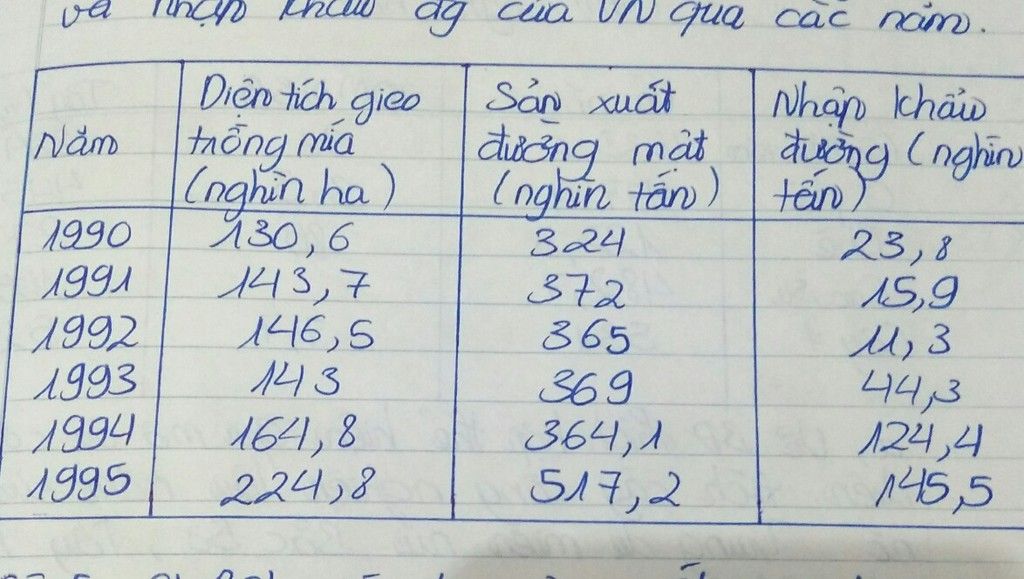 và nhập khẩu đg của VN qua các năm.
Năm
Diện tích gieo
trồng mía
(nghìn ha)
Sản xuất
đường mật
(nghìn tấn)
Nhập khẩu
đường (nghìn
tấn)
1990 130,6 324 23,8
1991 143,7 372 15,9
1992 146,5 365 11,3
1993 143 369 44,3
1994 164,8 364,1 124,4
1995 224,8 517,2 145,5